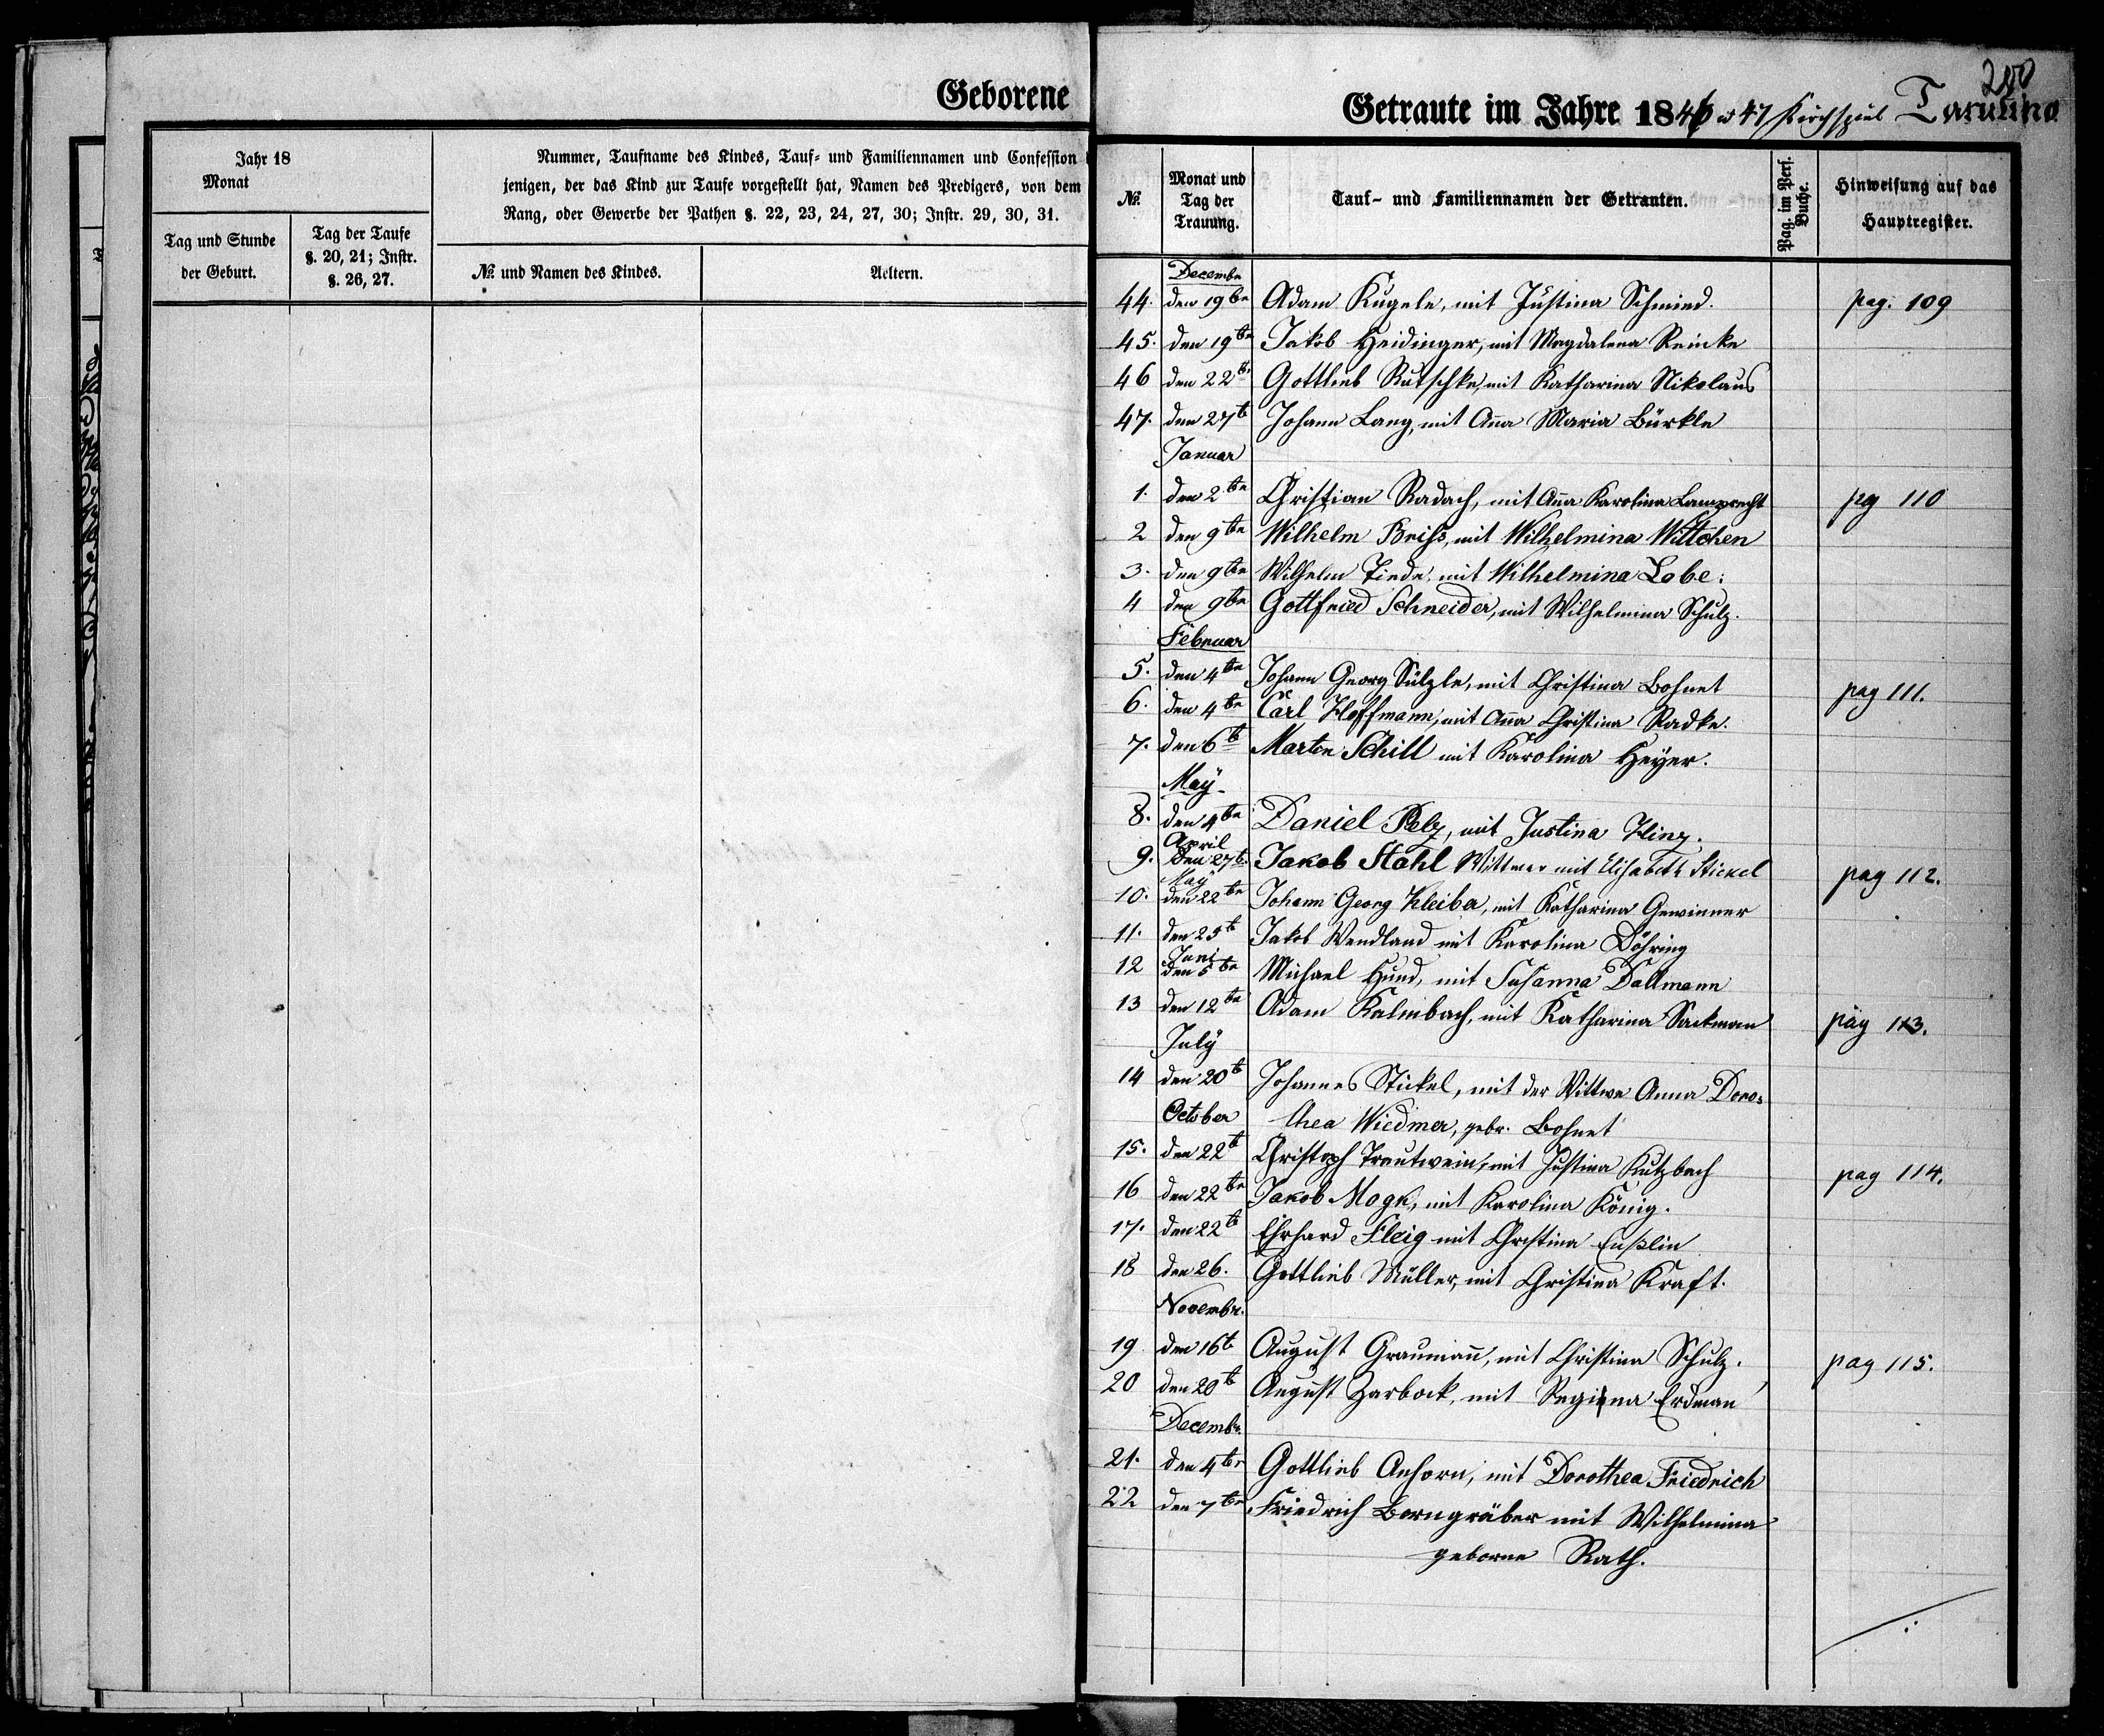 Geborene
Jahr 18
Monat
Tag und Stunde
der Geburt.
Tag der Taufe
§. 20, 21; Instr.
§. 26, 27.
Nummer, Taufname des Kindes, Tauf- und Familiennamen und Confession
jenigen, der das Kind zur Taufe vorgestellt hat, Namen des Predigers, von dem
Rang, oder Gewerbe der Pathen §. 22, 23, 24, 27, 30; Instr. 29, 30, 31.
№ und Namen des Kindes.
Aeltern.
Getraute im Jahre 1846 & 47 Kirchspiel Tarutino
№.
Monat und
Tag der
Trauung.
Tauf- und Familiennamen der Getrauten.
Pag. im Pers.
Buche.
Hinweisung auf das
Hauptregister.
Decembr
44. den 19ten Adam Kugele, mit Justina Schmied. pag. 109
45. den 19ten Jakob Heidinger, mit Magdalena Reinke
46 den 22t Gottlieb Rutschke, mit Katharina Nikolaus
47. den 27t Johann Lang, mit Ana Maria Bürkle
Januar
1. den 2ten Christian Radach, mit Ana Karolina Lamprecht pg 110
2 den 9ten Wilhelm Briss, mit Wilhelmina Wittchen
3. den 9ten Wilhelm Tiede, mit Wilhelmina Lobe.
4 den 9ten Gottfried Schneider, mit Wilhelmina Schulz.
Februar
5. den 4ten Johann Georg Sülzle, mit Christina Bohnet pag 111.
6. den 4ten Carl Hoffmann, mit Ana Christina Radke.
7. den 6t Marten Schill mit Karolina Heÿer.
Maÿ
8. den 4ten Daniel Pelz, mit Justina Hinz.
April
9. den 27t Jakob Stahl Wittwer mit Elisabeth Stickel pag 112.
Maÿ
10. den 22ten Johann Georg Kleiber, mit Katharina Gewinner
11. den 25t Jakob Wendland mit Karolina Döhring
Juni
12 den 5ten Michael Hund, mit Susanna Dallmann
13 den 12ten Adam Kalmbach, mit Katharina Sackman pag 113.
Julÿ
14 den 20t Johannes Stickel, mit der Wittwe Anna Doro=
October thea Wiedmer, gebr. Bohnet
15. den 22t Christoph Trautwein, mit Justina Kutzbach pag 114.
16 den 22ten Jakob Mogk, mit Karolina König.
17. den 22t Ehrhard Fleig mit Christina Enßlin
18 den 26. Gottlieb Müller, mit Christina Kraft.
Novembr.
19 den 16t August Graumañ, mit Christina Schulz. pag 115.
20 den 20t August Zarbock, mit Regina Erdman
Decembr.
21. den 4ten Gottlieb Anhorn, mit Dorothea Friedrich
22 den 7ten Friedrich Borngräber mit Wilhelmina
geborne Rath.